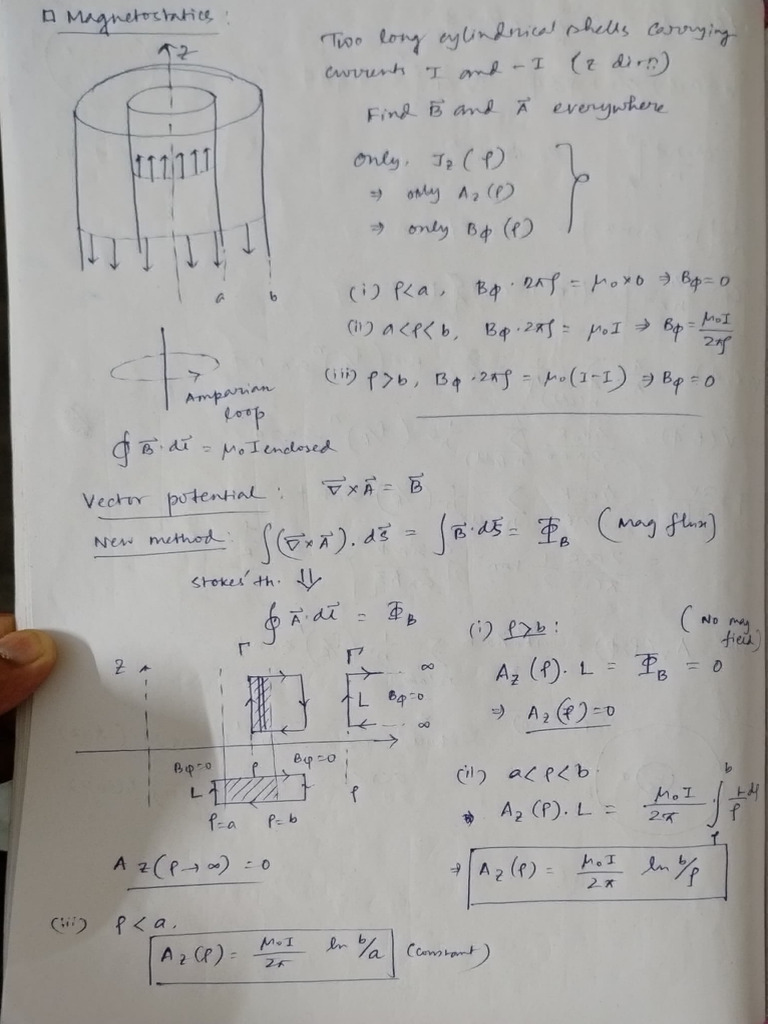 □ Magnetostatics:
Two long cylindrical shells carrying
currents I and -I (z dirⁿ)
Find B⃗ and A⃗ everywhere
Z
a b
only, J_z (ρ)
⇒ only A_z (ρ)
⇒ only B_φ (ρ)
(i) ρ<a, B_φ · 2πρ = μ₀×0 ⇒ B_φ = 0
(ii) a<ρ<b, B_φ · 2πρ = μ₀I ⇒ B_φ = μ₀I / 2πρ
(iii) ρ>b, B_φ · 2πρ = μ₀(I-I) ⇒ B_φ = 0
Amparian
loop
∮ B⃗ · dl⃗ = μ₀ I enclosed
Vector potential: ∇⃗×A⃗ = B⃗
New method: ∫(∇⃗×A⃗) · ds⃗ = ∫B⃗ · ds⃗ = Φ_B (Mag flux)
Stokes' th. ⇓
∮ A⃗ · dl⃗ = Φ_B
(i) ρ>b: (No mag field)
A_z (ρ) · L = Φ_B = 0
⇒ A_z (ρ) = 0
Z Γ Γ ∞
L B_φ=0
∞
B_φ=0 ρ B_φ=0
L ρ
ρ=a ρ=b
A_z (ρ → ∞) = 0
(ii) a<ρ<b
A_z (ρ) · L = μ₀I / 2π · ∫_ρ^b L dρ / ρ
⇒ A_z (ρ) = μ₀I / 2π ln b/ρ
(iii) ρ<a.
A_z (ρ) = μ₀I / 2π ln b/a (constant)